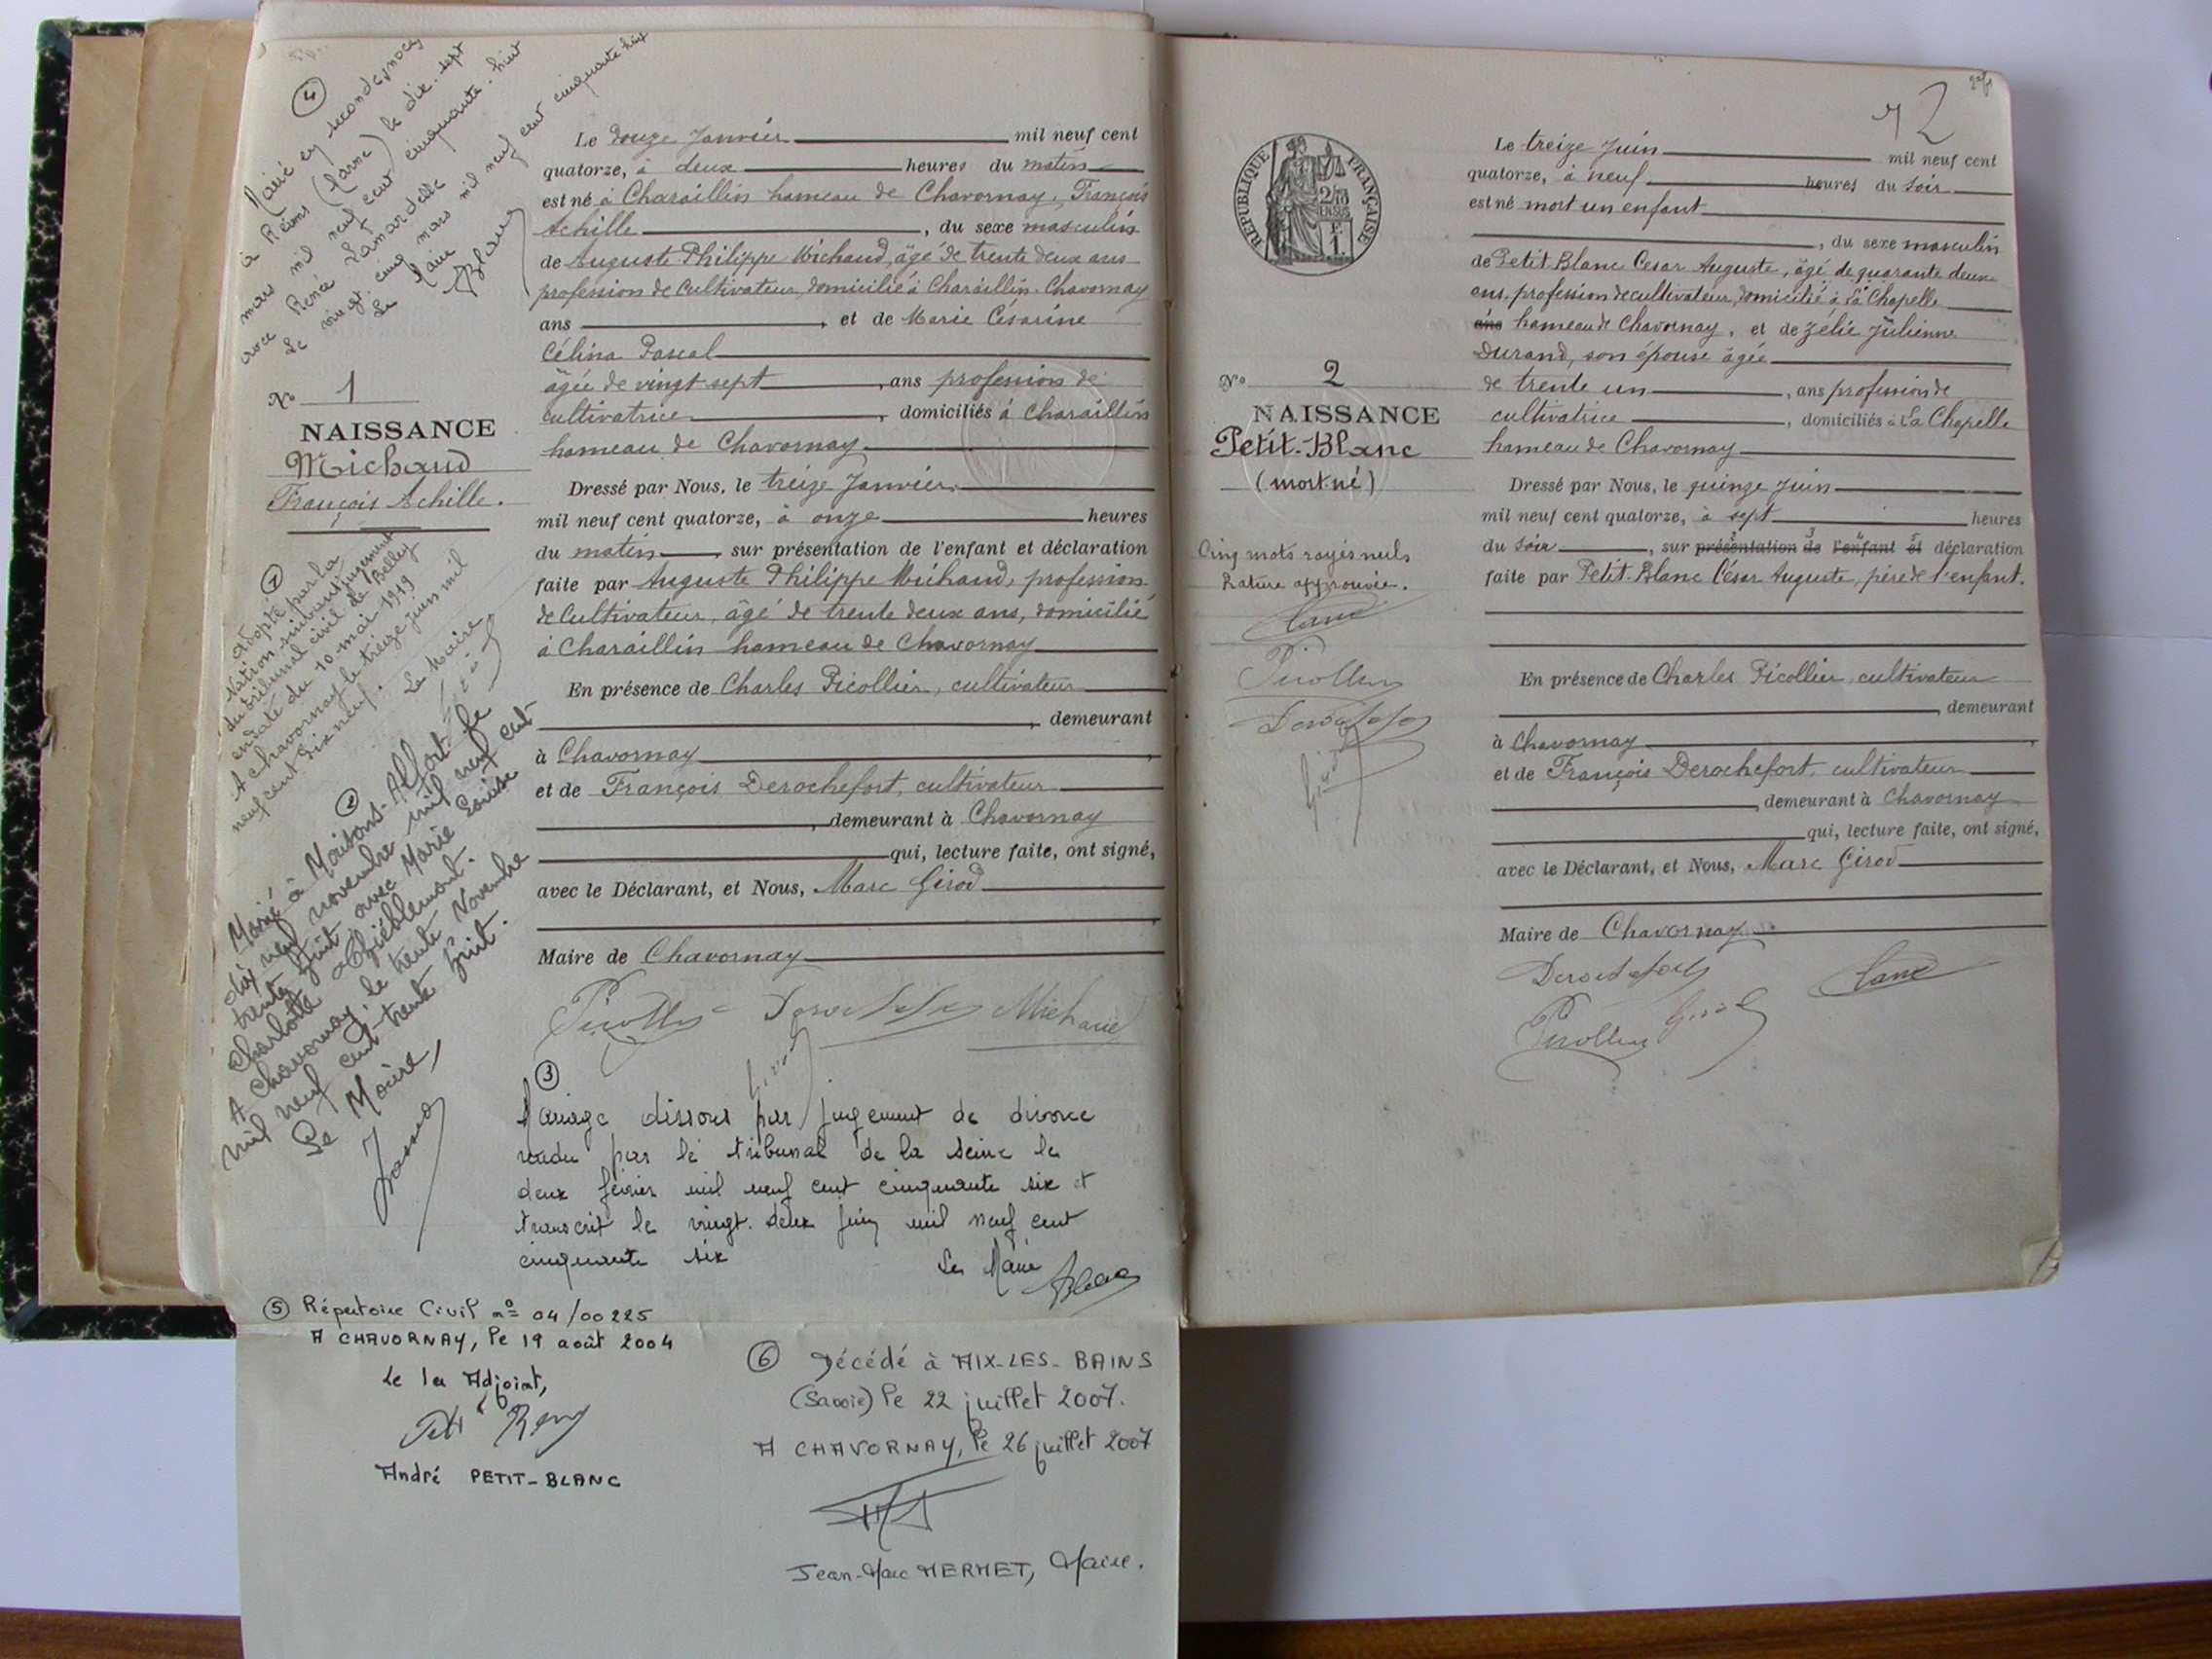 ④
Marié en secondes noces
à Reims (Marne) le dix-sept
mars mil neuf cent cinquante-huit
avec Renée Lamardelle
Le vingt cinq mars mil neuf cent cinquante huit
Le Maire
ABlanc
N° 1
NAISSANCE
Michaud
François Achille.
①
Adopté par la
Nation suivant jugement
du tribunal civil de Belley
en date du 10 mai 1919
A Chavornay le treize juin mil
neuf cent dix neuf.
Le Maire
Girod
②
Marié à Maisons-Alfort le
dix neuf novembre mil neuf cent
trente huit avec Marie Louise
Charlotte Thiéblemont.
A Chavornay, le trente Novembre
mil neuf cent trente huit.
Le Maire,
Le douze Janvier mil neuf cent
quatorze, à deux heures du matin
est né à Charaillin hameau de Chavornay, François
Achille , du sexe masculin
de Auguste Philippe Michaud, âgé de trente deux ans
profession de Cultivateur, domicilié à Charaillin-Chavornay
ans , et de Marie Césarine
Célina Pascal
âgée de vingt sept , ans profession de
cultivatrice , domiciliés à Charaillin
hameau de Chavornay
Dressé par Nous, le treize Janvier
mil neuf cent quatorze, à onze heures
du matin , sur présentation de l'enfant et déclaration
faite par Auguste Philippe Michaud, profession
de Cultivateur, âgé de trente deux ans, domicilié
à Charaillin hameau de Chavornay
En présence de Charles Picollier, cultivateur
, demeurant
à Chavornay
et de François Derochefort, cultivateur
, demeurant à Chavornay
qui, lecture faite, ont signé,
avec le Déclarant, et Nous, Marc Girod
Maire de Chavornay
Picollier Derochefort Michaud
Girod
③
Mariage dissous par jugement de divorce
rendu par le tribunal de la Seine le
deux février mil neuf cent cinquante six et
transcrit le vingt-deux juin mil neuf cent
cinquante six
Le Maire
ABlanc
⑤ Répertoire Civil n° 04/00225
A CHAVORNAY, le 19 août 2004
Le 1er Adjoint,
André PETIT-BLANC
⑥ Décédé à AIX-LES-BAINS
(Savoie) le 22 juillet 2007.
A CHAVORNAY, le 26 juillet 2007
Jean-Marc MERMET, Maire.
2
RÉPUBLIQUE FRANÇAISE
2/10
EN SUS
1F.
N° 2
NAISSANCE
Petit-Blanc
(mort-né)
Cinq mots rayés nuls
Rature approuvée.
Blanc
Picollier
Derochefort
Girod
Le treize Juin mil neuf cent
quatorze, à neuf heures du soir
est né mort un enfant
, du sexe masculin
de Petit-Blanc Cesar Auguste, âgé de quarante deux
ans, profession de cultivateur, domicilié à La Chapelle
ans hameau de Chavornay, et de Zélie Julienne
Durand, son épouse âgée
de trente un , ans profession de
cultivatrice , domiciliés à La Chapelle
hameau de Chavornay
Dressé par Nous, le quinze Juin
mil neuf cent quatorze, à sept heures
du soir , sur présentation de l'enfant et déclaration
faite par Petit-Blanc César Auguste, père de l'enfant.
En présence de Charles Picollier cultivateur
, demeurant
à Chavornay
et de François Derochefort, cultivateur
, demeurant à Chavornay
qui, lecture faite, ont signé,
avec le Déclarant, et Nous, Marc Girod
Maire de Chavornay
Derochefort Blanc
Picollier Girod